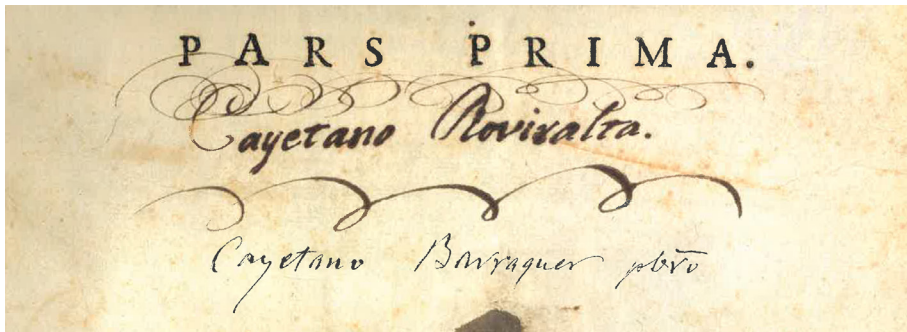 PARS PRIMA.
Cayetano Roviralta.
Cayetano Barraquer pbrō